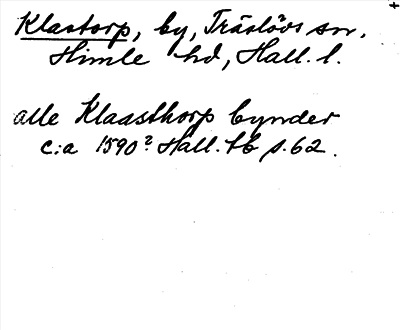 Klastorp, by, Träslövs sn,
Himle hd, Hall. l.
alle Klaasthorp bynder
c:a 1590? Hall. tb s. 62.